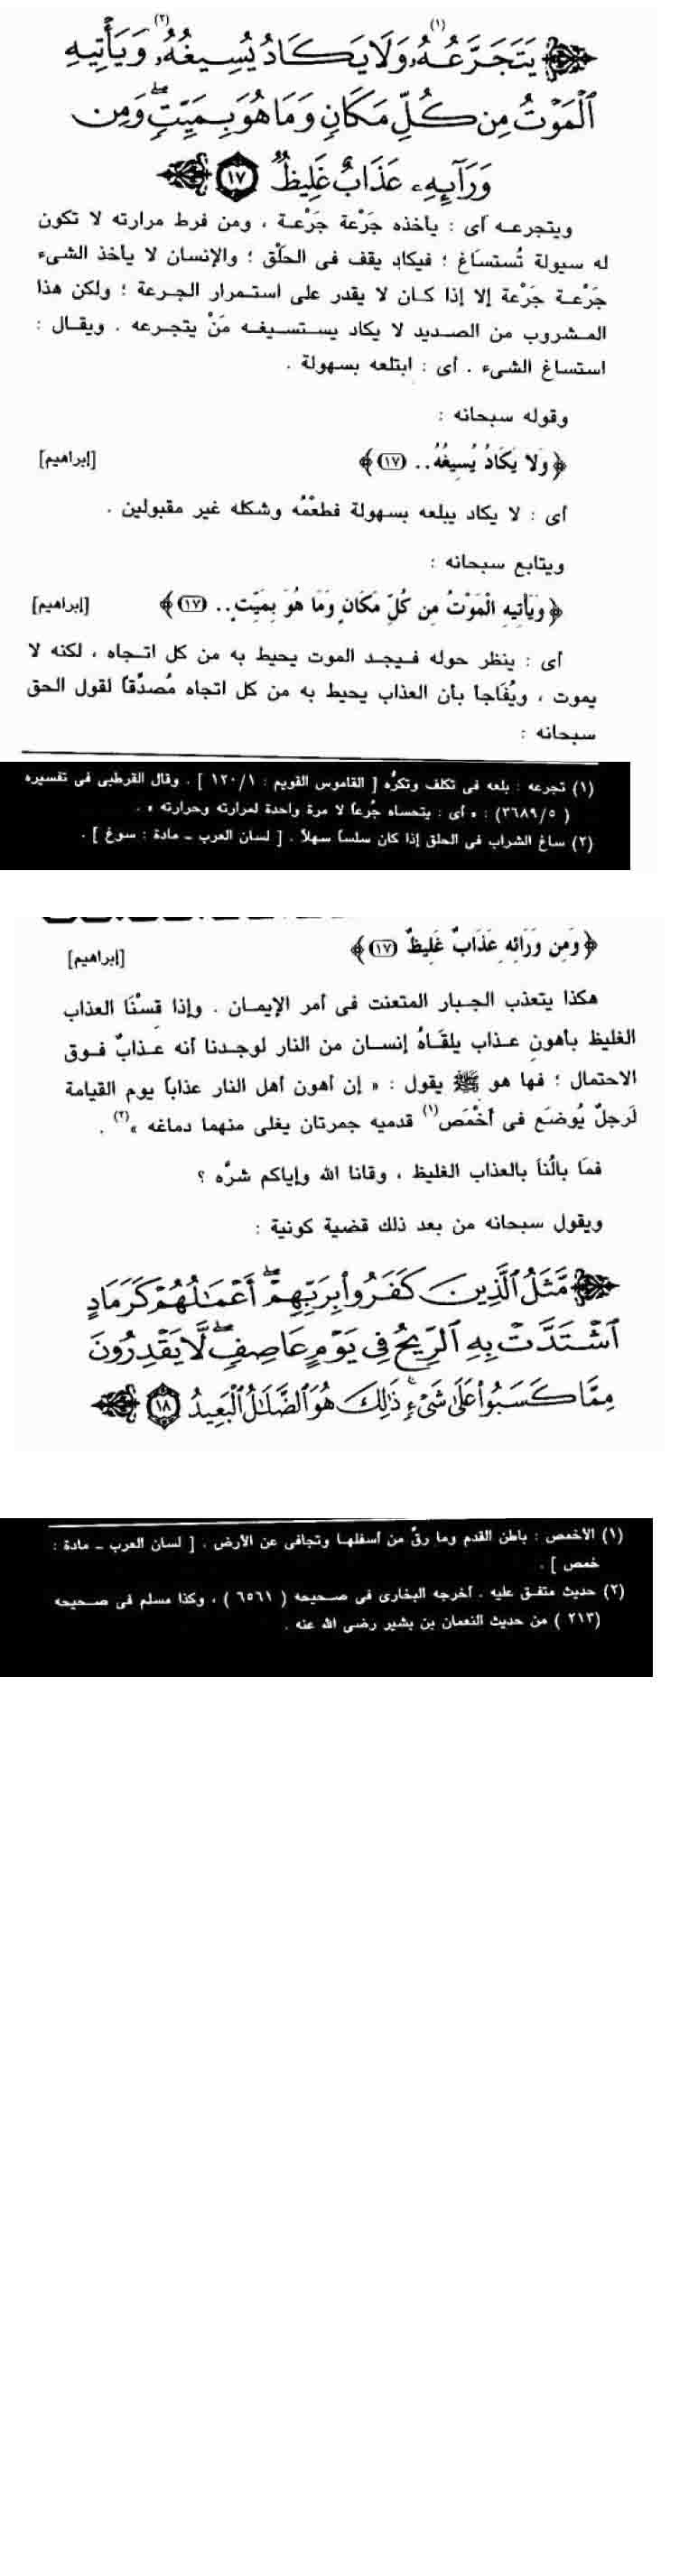 يَتَجَرَّعُهُۥ(١) وَلَا يَكَادُ يُسِيغُهُۥ(٢) وَيَأْتِيهِ
ٱلْمَوْتُ مِن كُلِّ مَكَانٍ وَمَا هُوَ بِمَيِّتٍۖ وَمِن
وَرَآئِهِۦ عَذَابٌ غَلِيظٌ ﴿١٧﴾
ويتجرعه أى : يأخذه جَرْعة جَرْعة ، ومن فرط مرارته لا تكون
له سيولة تُستسَاغ ؛ فيكاد يقف فى الحلْق ؛ والإنسان لا يأخذ الشىء
جَرْعة جَرْعة إلا إذا كان لا يقدر على استمرار الجرعة ؛ ولكن هذا
المشروب من الصديد لا يكاد يستسيغه مَنْ يتجرعه . ويقال :
استساغ الشىء . أى : ابتلعه بسهولة .
وقوله سبحانه :
﴿ وَلا يَكَادُ يُسِيغُهُ .. (١٧) ﴾ [إبراهيم]
أى : لا يكاد يبلعه بسهولة فطعْمُه وشكله غير مقبولين .
ويتابع سبحانه :
﴿ وَيَأْتِيهِ الْمَوْتُ مِن كُلِّ مَكَانٍ وَمَا هُوَ بِمَيِّتٍ .. (١٧) ﴾ [إبراهيم]
أى : ينظر حوله فيجد الموت يحيط به من كل اتجاه ، لكنه لا
يموت ، ويُفَاجأ بأن العذاب يحيط به من كل اتجاه مُصدِّقاً لقول الحق
سبحانه :
(١) تجرعه : بلعه فى تكلف وتكرُّه [ القاموس القويم : ١/ ١٢٠ ] . وقال القرطبى فى تفسيره
( ٥/ ٣٦٨٩) : « أى : يتحساه جُرعاً لا مرة واحدة لمرارته وحرارته » .
(٢) ساغ الشراب فى الحلق إذا كان سلساً سهلاً . [ لسان العرب - مادة : سوغ ] .
﴿ وَمِن وَرَائِهِ عَذَابٌ غَلِيظٌ (١٧) ﴾ [إبراهيم]
هكذا يتعذب الجبار المتعنت فى أمر الإيمان . وإذا قِسْنَا العذاب
الغليظ بأهونِ عذاب يلقَاهُ إنسان من النار لوجدنا أنه عذابٌ فوق
الاحتمال ؛ فها هو ﷺ يقول : « إن أهون أهل النار عذاباً يوم القيامة
لَرجلٌ يُوضَع فى أخْمَص(١) قدميه جمرتان يغلى منهما دماغه »(٢) .
فمَا بالُناَ بالعذاب الغليظ ، وقانا الله وإياكم شرَّه ؟
ويقول سبحانه من بعد ذلك قضية كونية :
مَّثَلُ ٱلَّذِينَ كَفَرُوا۟ بِرَبِّهِمْۖ أَعْمَٰلُهُمْ كَرَمَادٍ
ٱشْتَدَّتْ بِهِ ٱلرِّيحُ فِى يَوْمٍ عَاصِفٍۖ لَّا يَقْدِرُونَ
مِمَّا كَسَبُوا۟ عَلَىٰ شَىْءٍۚ ذَٰلِكَ هُوَ ٱلضَّلَٰلُ ٱلْبَعِيدُ ﴿١٨﴾
(١) الأخمص : باطن القدم وما رقَّ من أسفلها وتجافى عن الأرض . [ لسان العرب - مادة :
خمص ] .
(٢) حديث متفق عليه . أخرجه البخارى فى صحيحه ( ٦٥٦١ ) ، وكذا مسلم فى صحيحه
(٢١٣ ) من حديث النعمان بن بشير رضى الله عنه .